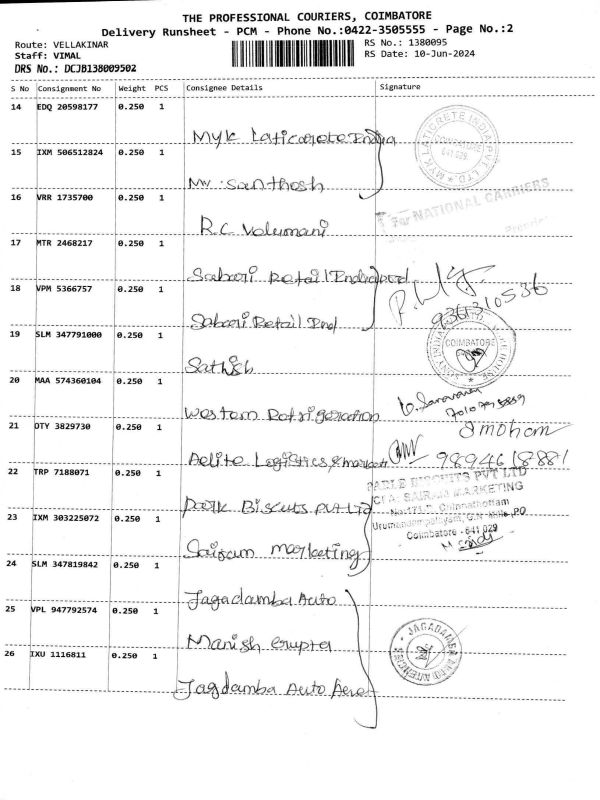 THE PROFESSIONAL COURIERS, COIMBATORE
Delivery Runsheet - PCM - Phone No.:0422-3505555 - Page No.:2
Route: VELLAKINAR
RS No.: 1380095
Staff: VIMAL
RS Date: 10-Jun-2024
DRS No.: DCJB138009502
S No Consignment No Weight PCS Consignee Details Signature
14 EDQ 20598177 0.250 1
Myk Laticrete India
MYK LATICRETE INDIA PVT. LTD.
COIMBATORE
641 029.
15 IXM 506512824 0.250 1
Mr. Santhosh
16 VRR 1735700 0.250 1
R.C Velumani
For NATIONAL CARRIERS
17 MTR 2468217 0.250 1
Sabari Retail India Pvt Ltd
18 VPM 5366757 0.250 1
Sabari Retail Ind
936310536
19 SLM 347791000 0.250 1
Sathish
COIMBATORE
20 MAA 574360104 0.250 1
Western Refrigeration
21 OTY 3829730 0.250 1
Aelite Logistics & market
9894618881
22 TRP 7188071 0.250 1
Biscuts Pvt Ltd
PARLE BISCUITS PVT LTD
C/A: SAIRAM MARKETING
Urumandampalayam, G.N. Mills, PO
Coimbatore - 641 029
23 IXM 303225072 0.250 1
Sairam marketing
24 SLM 347819842 0.250 1
Jagadamba Auto
25 VPL 947792574 0.250 1
Manish Gupta
JAGADAMBA AUTO AGENCIES
26 IXU 1116811 0.250 1
Jagdamba Auto Agen